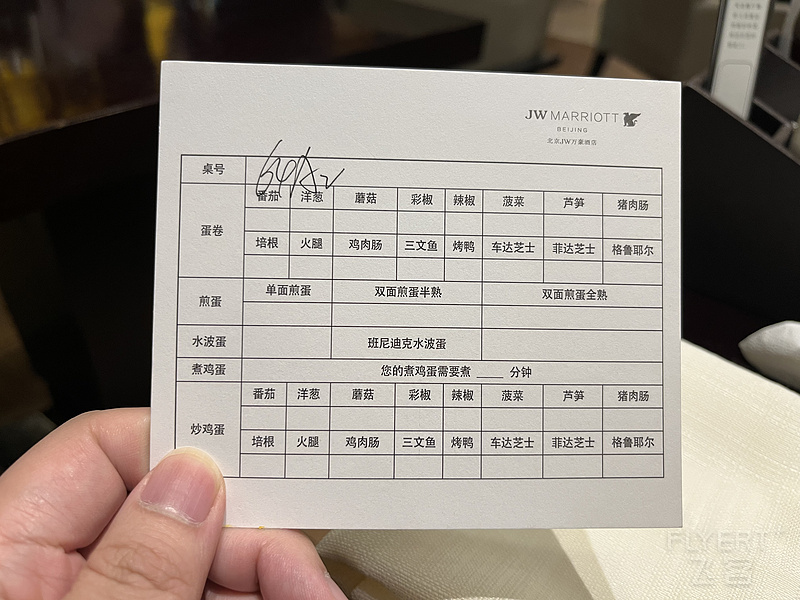 JW MARRIOTT
BEIJING
北京JW万豪酒店
桌号
番茄 洋葱 蘑菇 彩椒 辣椒 菠菜 芦笋 猪肉肠
蛋卷
培根 火腿 鸡肉肠 三文鱼 烤鸭 车达芝士 菲达芝士 格鲁耶尔
煎蛋 单面煎蛋 双面煎蛋半熟 双面煎蛋全熟
水波蛋 班尼迪克水波蛋
煮鸡蛋 您的煮鸡蛋需要煮 ____ 分钟
番茄 洋葱 蘑菇 彩椒 辣椒 菠菜 芦笋 猪肉肠
炒鸡蛋
培根 火腿 鸡肉肠 三文鱼 烤鸭 车达芝士 菲达芝士 格鲁耶尔
FLYERT
飞客